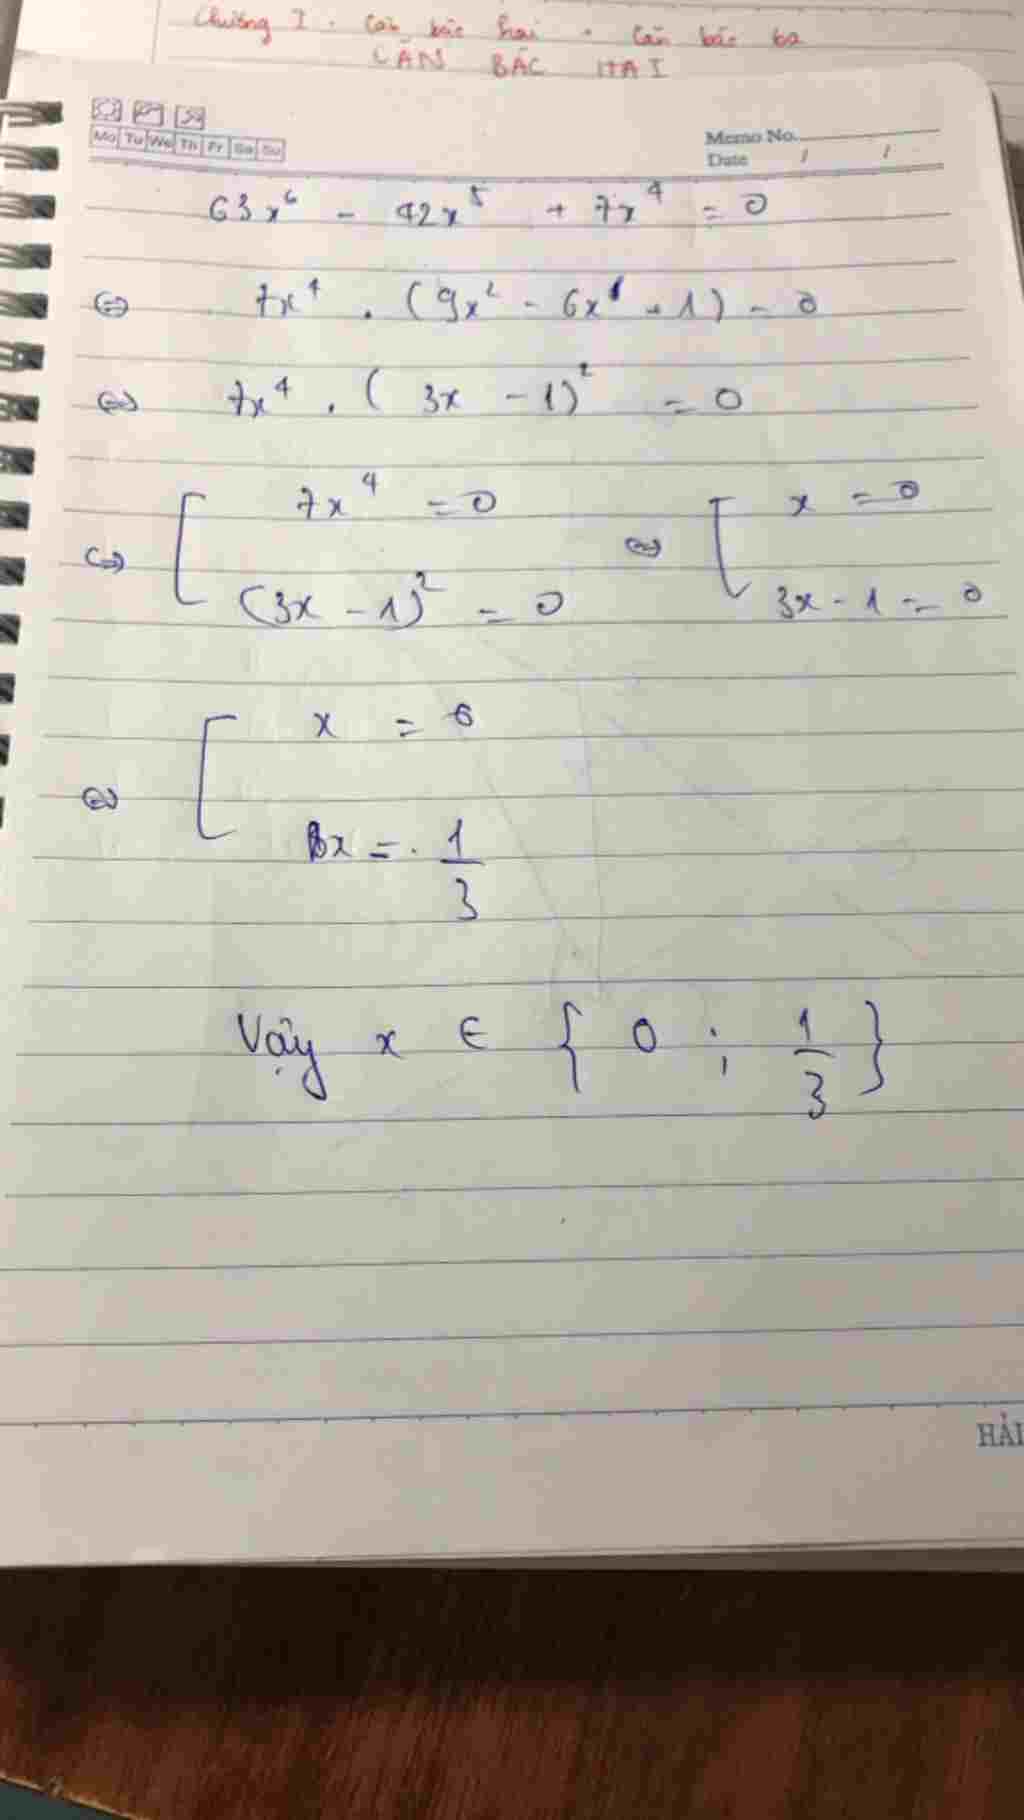 Chương I. Căn bậc hai. Căn bậc ba
CĂN BẬC HAI
Mo Tu We Th Fr Sa Su
Memo No.
Date / /
63x⁶ - 42x⁵ + 7x⁴ = 0
⇔ 7x⁴ . (9x² - 6x + 1) = 0
⇔ 7x⁴ . (3x - 1)² = 0
⇔ [ 7x⁴ = 0 ⇔ [ x = 0
(3x - 1)² = 0 3x - 1 = 0
⇔ [ x = 0
x = 1/3
Vậy x ∈ { 0 ; 1/3 }
HẢI